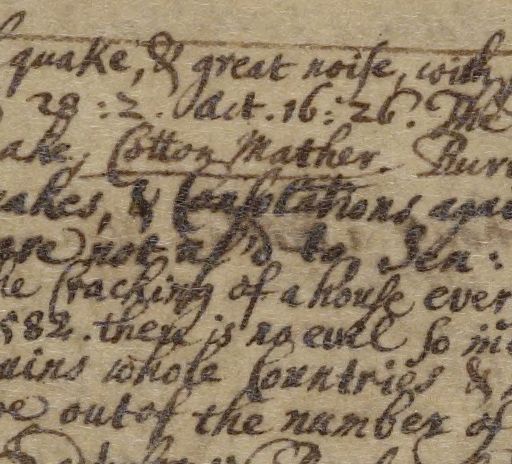 quake, & great noise, with
28:2. Act. 16:26. The
ake, Cotton Mather. Bur
akes, & Consolations agai
ere not us'd to Sen:
le Cracking of a house ever
582. there is no evel so m
ains whole Countries &
ve out of the number of